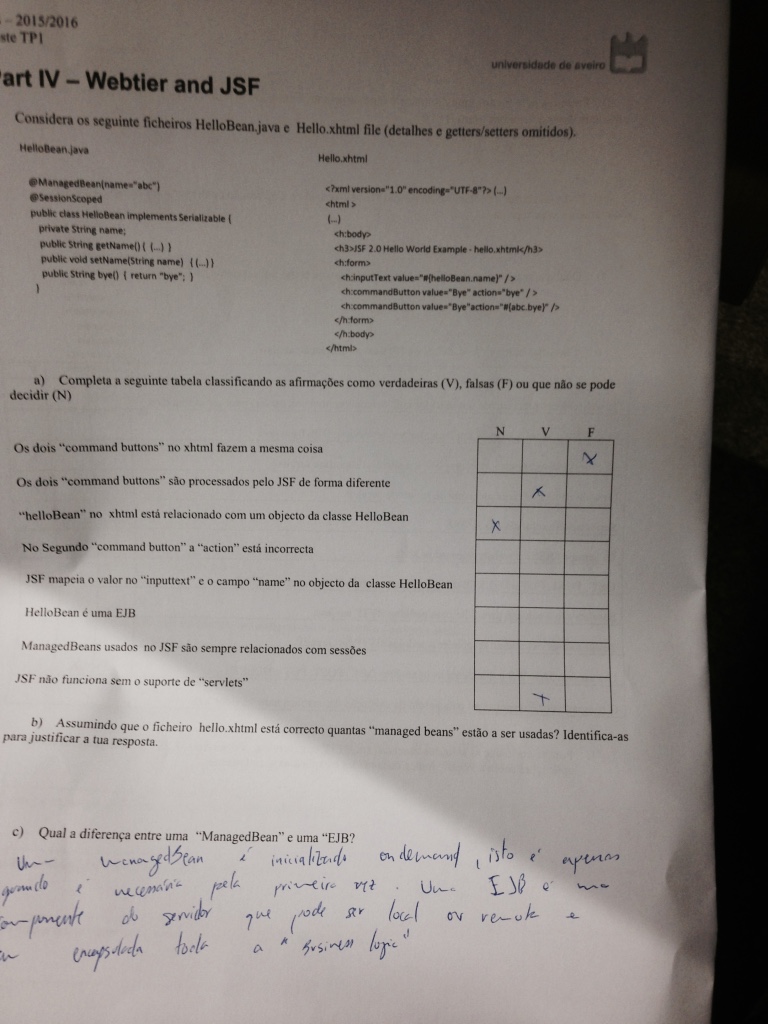 – 2015/2016
ste TP1
universidade de aveiro
art IV – Webtier and JSF
Considera os seguinte ficheiros HelloBean.java e Hello.xhtml file (detalhes e getters/setters omitidos).
HelloBean.java
@ManagedBean(name="abc")
@SessionScoped
public class HelloBean implements Serializable {
private String name;
public String getName() { (...) }
public void setName(String name) { (...)}
public String bye() { return "bye"; }
}
Hello.xhtml
<?xml version="1.0" encoding="UTF-8"?> (...)
<html >
(...)
<h:body>
<h3>JSF 2.0 Hello World Example - hello.xhtml</h3>
<h:form>
<h:inputText value="#{helloBean.name}" / >
<h:commandButton value="Bye" action="bye" / >
<h:commandButton value="Bye"action="#{abc.bye}" />
</h:form>
</h:body>
</html>
a) Completa a seguinte tabela classificando as afirmações como verdadeiras (V), falsas (F) ou que não se pode
decidir (N)
N V F
Os dois “command buttons” no xhtml fazem a mesma coisa X
Os dois “command buttons” são processados pelo JSF de forma diferente X
“helloBean” no xhtml está relacionado com um objecto da classe HelloBean X
No Segundo “command button” a “action” está incorrecta
JSF mapeia o valor no “inputtext” e o campo “name” no objecto da classe HelloBean
HelloBean é uma EJB
ManagedBeans usados no JSF são sempre relacionados com sessões
JSF não funciona sem o suporte de “servlets” X
b) Assumindo que o ficheiro hello.xhtml está correcto quantas “managed beans” estão a ser usadas? Identifica-as
para justificar a tua resposta.
c) Qual a diferença entre uma “ManagedBean” e uma “EJB?
Um managedBean é inicializado on demand, isto é apenas
quando é necessária pela primeira vez. Uma EJB é uma
componente do servidor que pode ser local ou remote e
encapsulada toda a "Business logic"